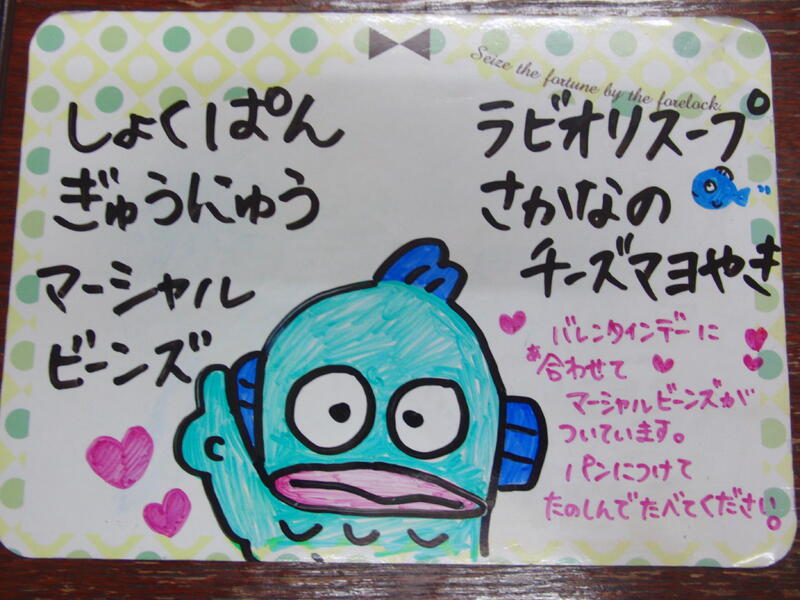 Seize the fortune by the forelock.
しょくぱん
ぎゅうにゅう
マーシャル
ビーンズ
ラビオリスープ
さかなの
チーズマヨやき
バレンタインデーに
あ
合わせて
マーシャルビーンズが
ついています。
パンにつけて
たのしんでたべてください。